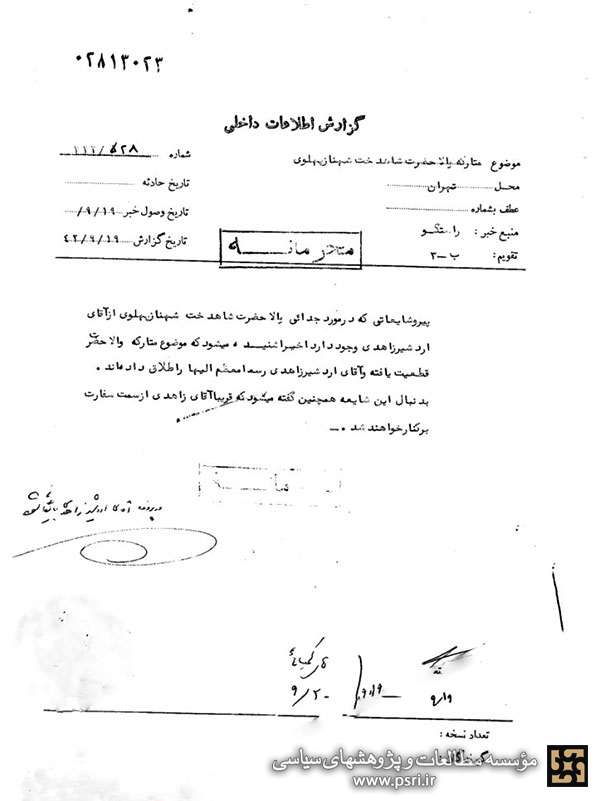 ۰۲۸۱۳۰۲۳
گزارش اطلاعات داخلی
موضوع متارکه والاحضرت شاهدخت شهناز پهلوی
شماره ۵۲۸
محل تهران
تاریخ حادثه
عطف بشماره
تاریخ وصول خبر ۹/۱۹/
منبع خبر : راستگو
تاریخ گزارش ۴۲/۹/۱۹
تقویم : ب-۳
محرمانه
پیرو شایعاتی که در مورد جدائی والاحضرت شاهدخت شهناز پهلوی از آقای
اردشیر زاهدی وجود دارد اخیرا شنیده میشود که موضوع متارکه والاحضرت
قطعیت یافته و آقای اردشیر زاهدی رسما معظم الیها را طلاق داده اند .
بدنبال این شایعه همچنین گفته میشود که قریبا آقای زاهدی از سمت سفارت
برکنار خواهند شد .
در پرونده آقای اردشیر زاهدی
۹/۱۹
۹/۲۰
تعداد نسخه :
مؤسسه مطالعات و پژوهشهای سیاسی
www.psri.ir